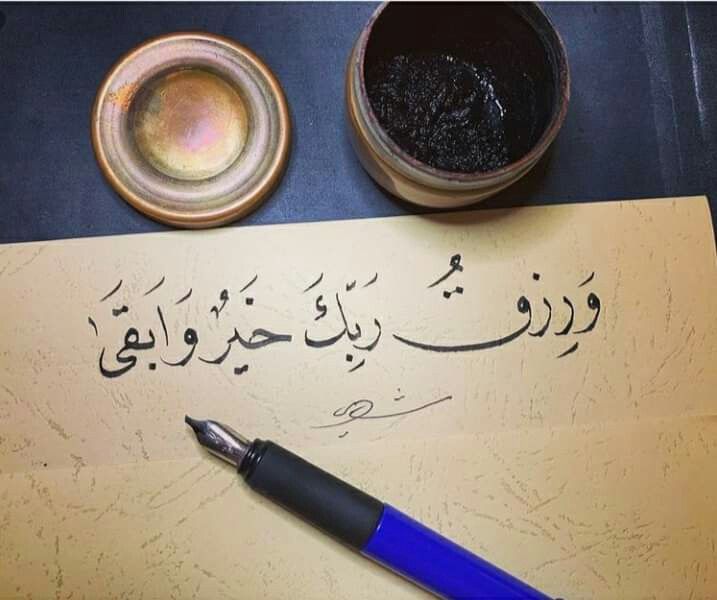 وَرِزقُ رَبِّكَ خَيرٌ وَابَقَىٰ